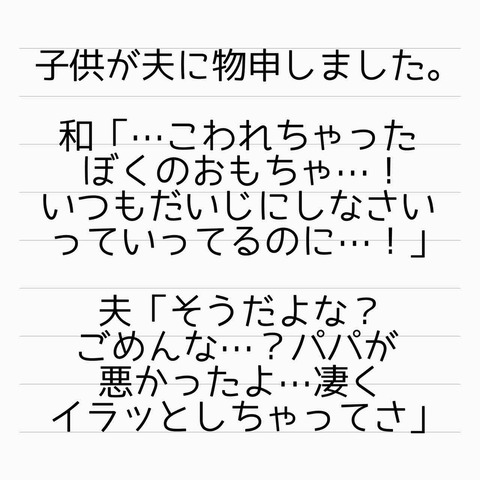 子供が夫に物申しました。
和「…こわれちゃった
ぼくのおもちゃ…！
いつもだいじにしなさい
っていってるのに…！」
夫「そうだよな？
ごめんな…？パパが
悪かったよ…凄く
イラッとしちゃってさ」